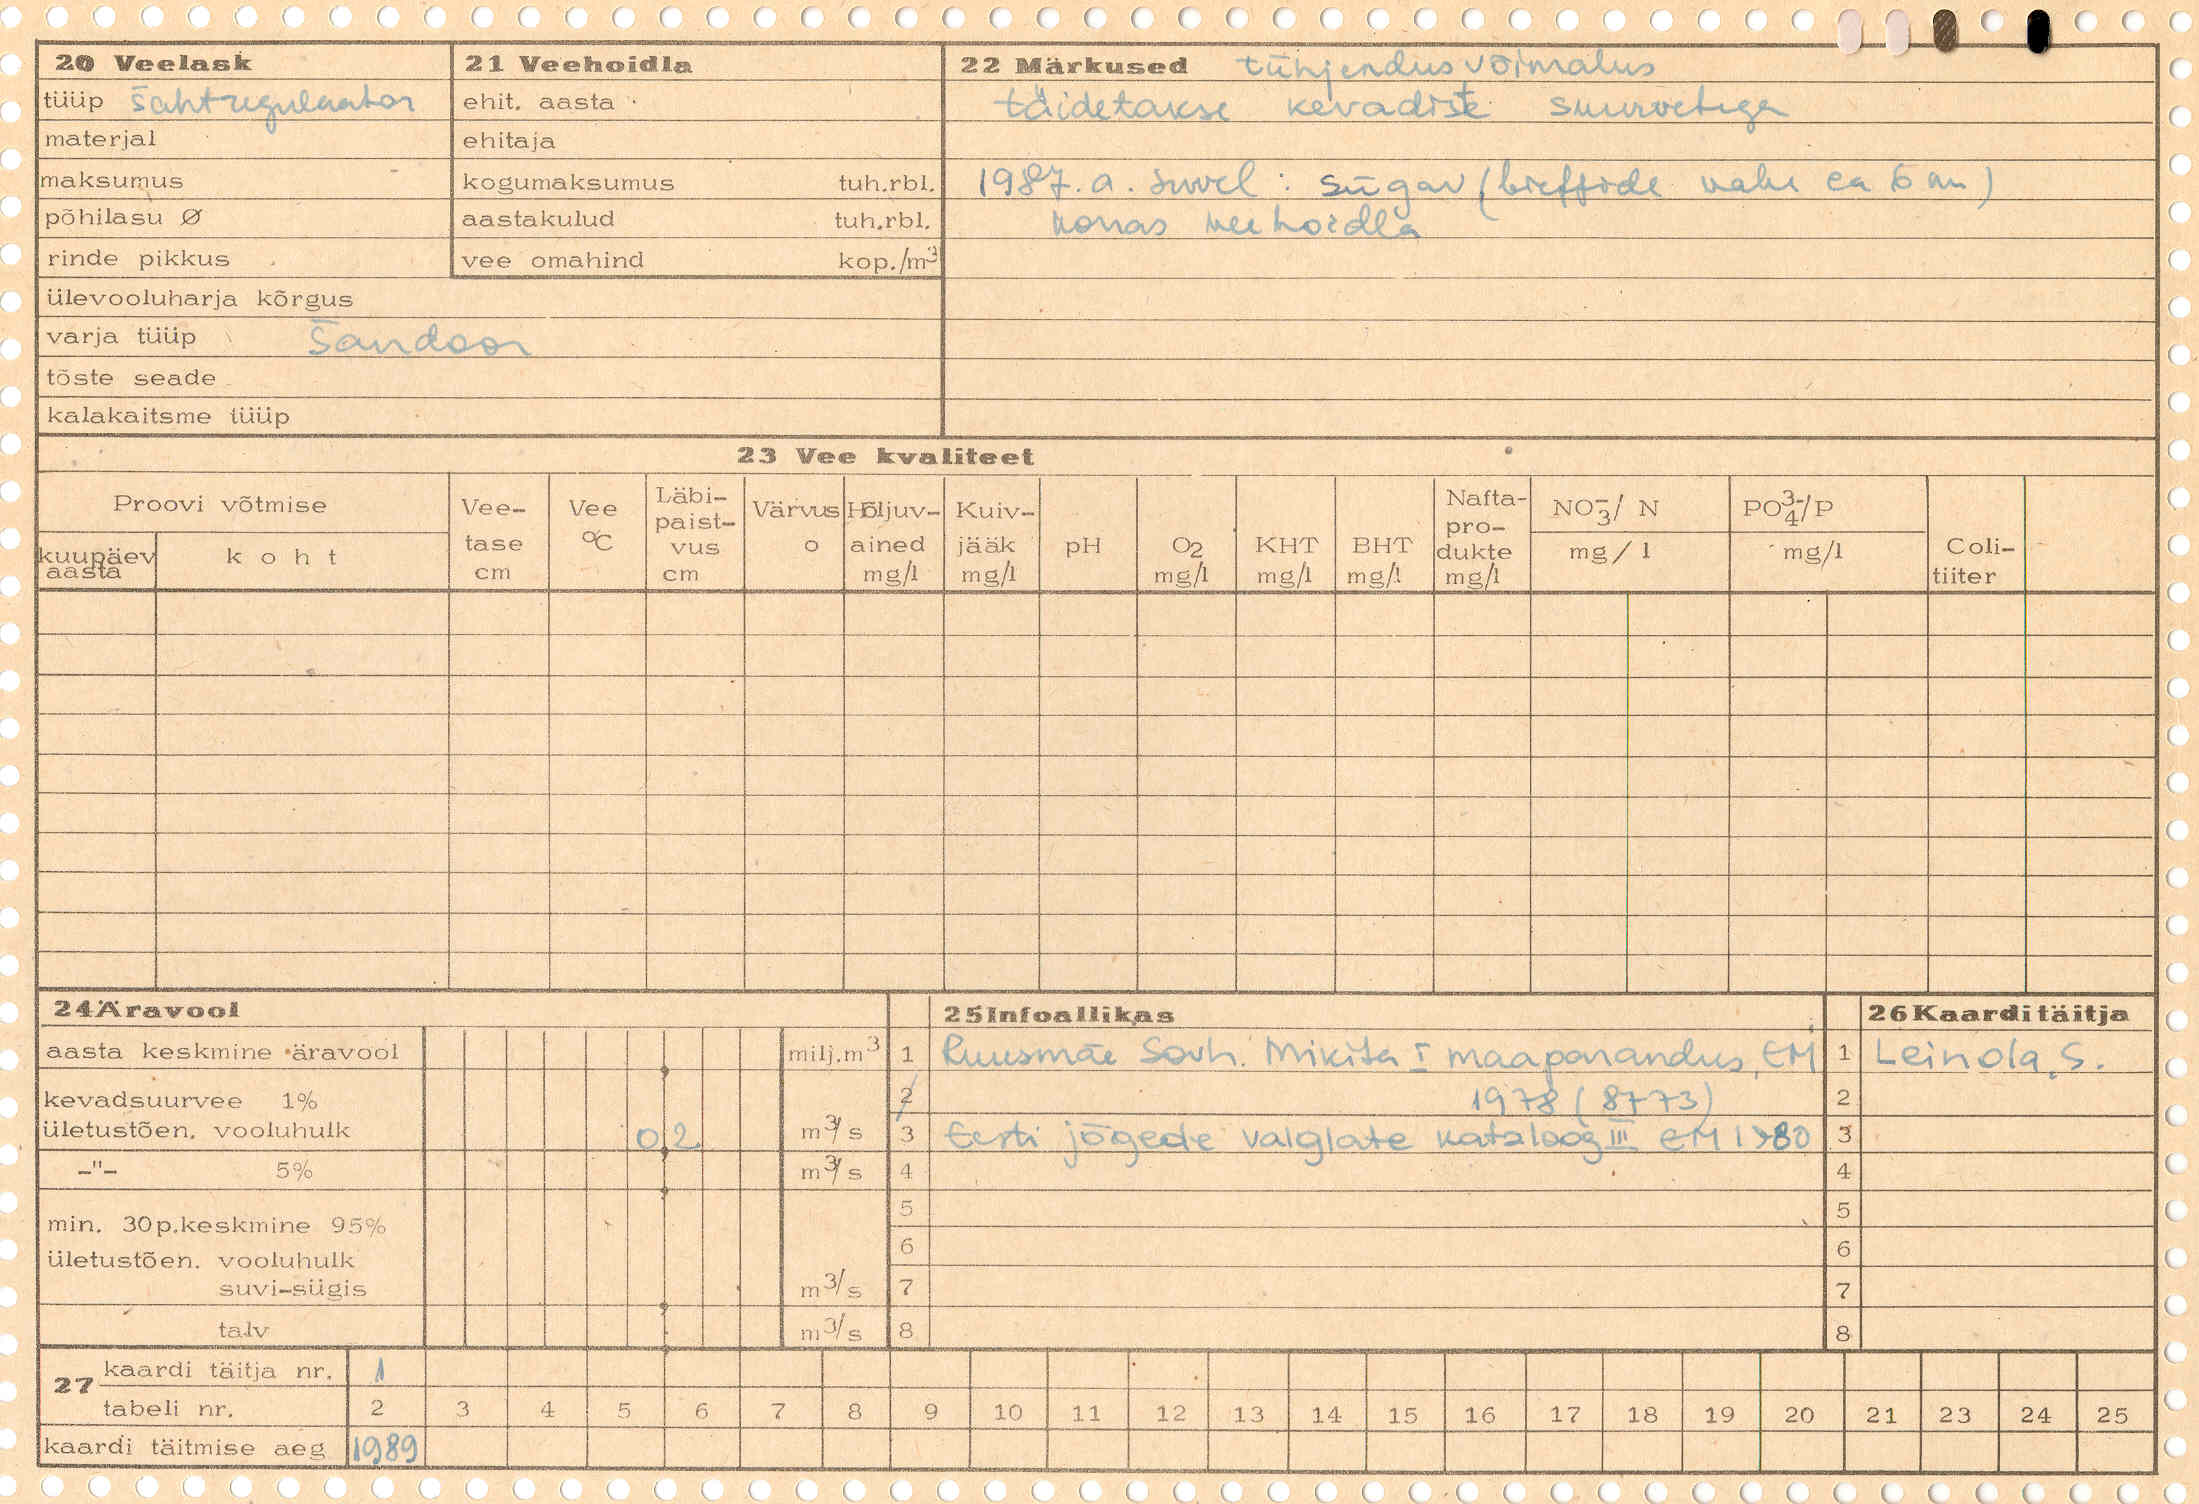 20 Veelask
tüüp šahtregulaator
materjal
maksumus
põhilasu Ø
rinde pikkus
ülevooluharja kõrgus
varja tüüp šandoor
tõste seade
kalakaitsme tüüp
21 Veehoidla
ehit. aasta
ehitaja
kogumaksumus tuh.rbl.
aastakulud tuh.rbl.
vee omahind kop./m3
22 Märkused tühjendusvõimalus
täidetakse kevadiste suurvetega
1987.a. suvel: sügav (bieffide vahe ca 6 m)
korras veehoidla
23 Vee kvaliteet
Proovi võtmise
kuupäev aasta
koht
Vee-
tase
cm
Vee
°C
Läbi-
paist-
vus
cm
Värvus
o
Hõljuv-
ained
mg/l
Kuiv-
jääk
mg/l
pH
O2
mg/l
KHT
mg/l
BHT
mg/l
Nafta-
pro-
dukte
mg/l
NO3-/ N
mg/l
PO4 3-/P
mg/l
Coli-
tiiter
24 Äravool
aasta keskmine äravool milj.m3
kevadsuurvee 1%
ületustõen. vooluhulk 0 2 m3/s
-"- 5% m3/s
min. 30p.keskmine 95%
ületustõen. vooluhulk
suvi-sügis m3/s
talv m3/s
25 Infoallikas
1 Ruusmäe Sovh. Mikita I maaparandus, EM
2 1978 (8773)
3 Eesti jõgede valglate kataloog III EM 1980
4
5
6
7
8
26 Kaardi täitja
1 Leinola, S.
2
3
4
5
6
7
8
27 kaardi täitja nr. 1
tabeli nr. 2 3 4 5 6 7 8 9 10 11 12 13 14 15 16 17 18 19 20 21 23 24 25
kaardi täitmise aeg 1989